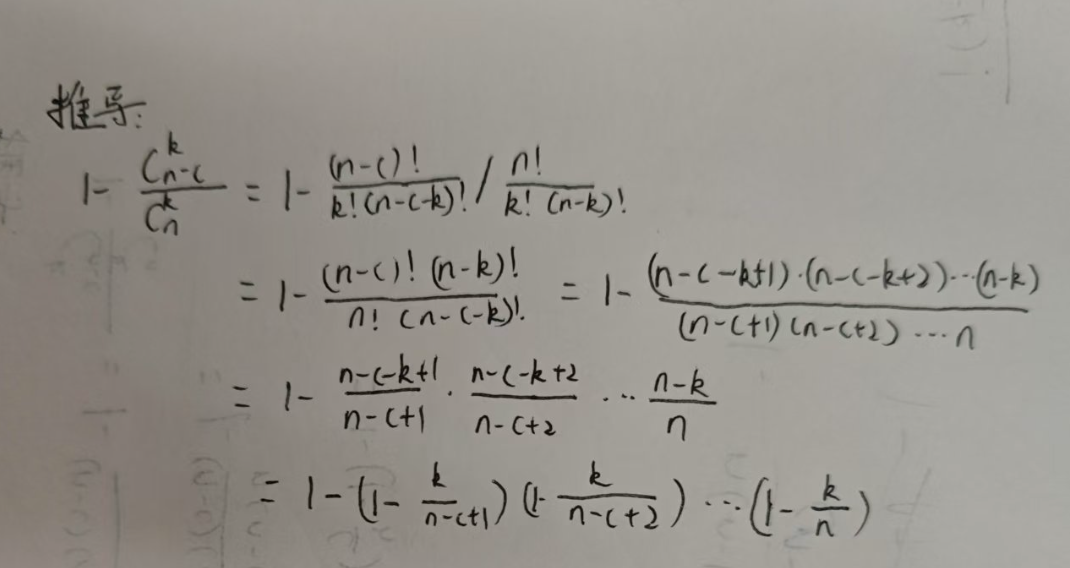 推导:
1 - \frac{C_{n-c}^{k}}{C_{n}^{k}} = 1 - \frac{(n-c)!}{k!(n-c-k)!} / \frac{n!}{k!(n-k)!}
= 1 - \frac{(n-c)!(n-k)!}{n!(n-c-k)!} = 1 - \frac{(n-c-k+1)·(n-c-k+2)···(n-k)}{(n-c+1)(n-c+2)···n}
= 1 - \frac{n-c-k+1}{n-c+1} · \frac{n-c-k+2}{n-c+2} ··· \frac{n-k}{n}
= 1 - (1 - \frac{k}{n-c+1})(1 - \frac{k}{n-c+2})···(1 - \frac{k}{n})